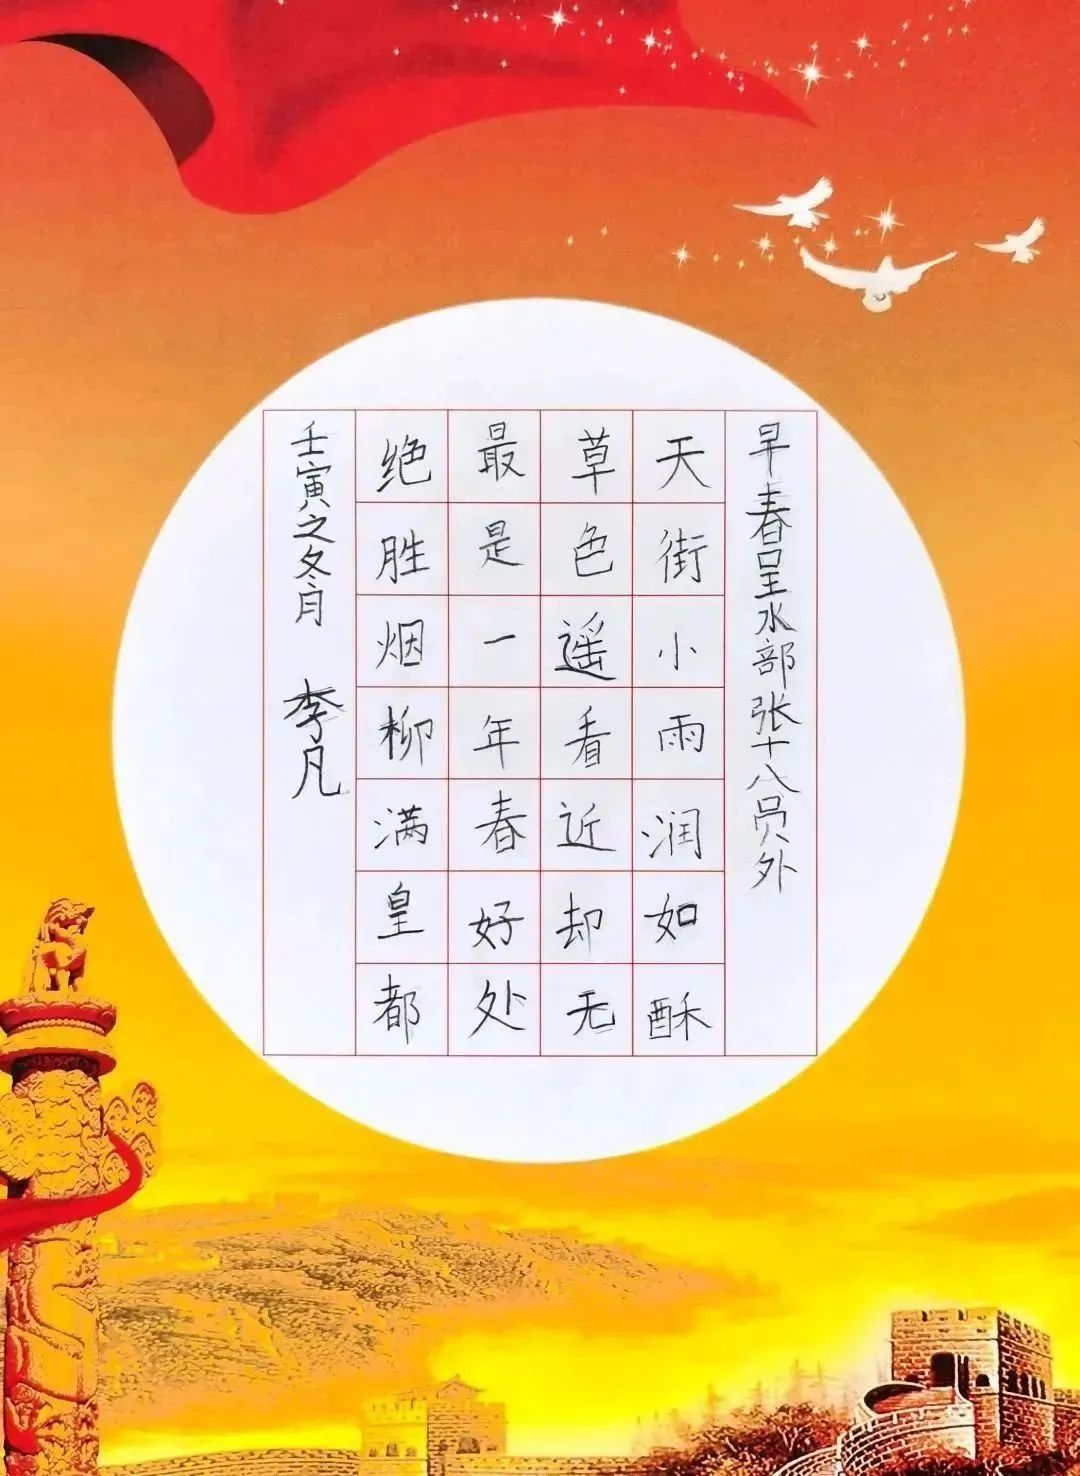 早春呈水部张十八员外
天街小雨润如酥
草色遥看近却无
最是一年春好处
绝胜烟柳满皇都
壬寅之冬月 李凡